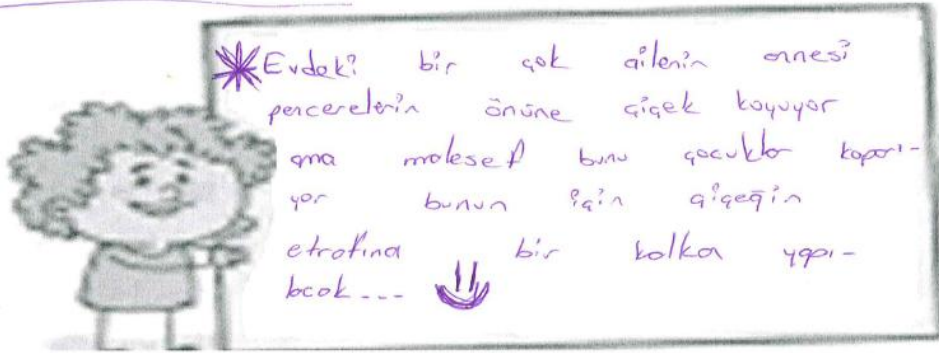 Evdeki bir çok ailenin annesi
pencerelerin önüne çiçek koyuyor
ama malesef bunu çocuklar koparı-
yor bunun için çiçeğin
etrafına bir kalkan yapı-
lacak...